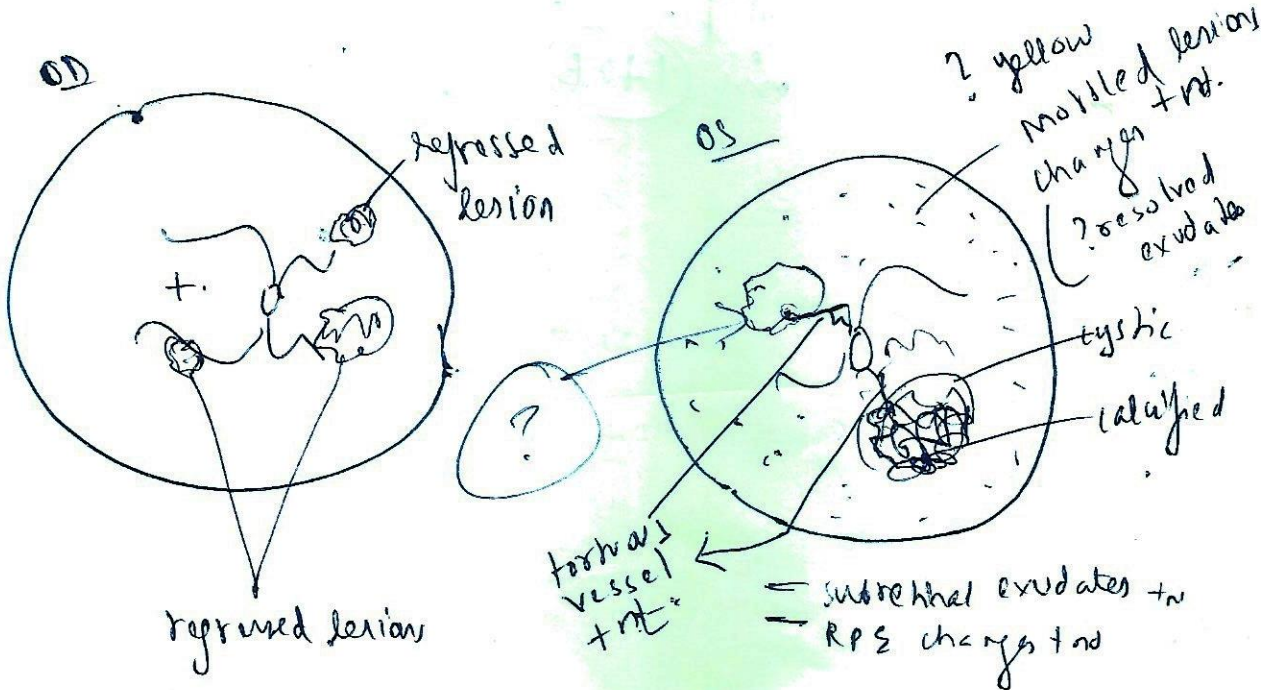 OD
regressed
lesion
regressed lesion
OS
? yellow
mottled lesions
changes +nt.
? resolved
exudates
cystic
calcified
?
vessel
+nt
- subretinal exudates
- RPE changes